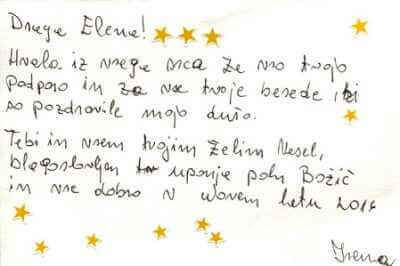 Draga Elena!
Hvala iz vsega srca za vso tvojo
podporo in za vse tvoje besede, ki
so pozdravile mojo dušo.
Tebi in vsem tvojim želim Vesel,
blagoslovljen upanja poln Božič
in vse dobro v novem letu
Irena